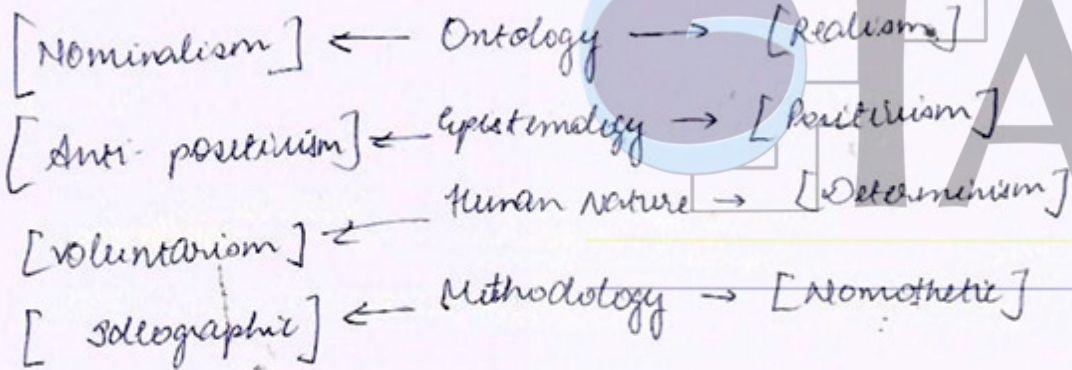 [Nominalism] ← Ontology → [Realism]
[Anti-positivism] ← Epistemology → [Positivism]
[Voluntarism] ← Human Nature → [Determinism]
[Ideographic] ← Methodology → [Nomothetic]